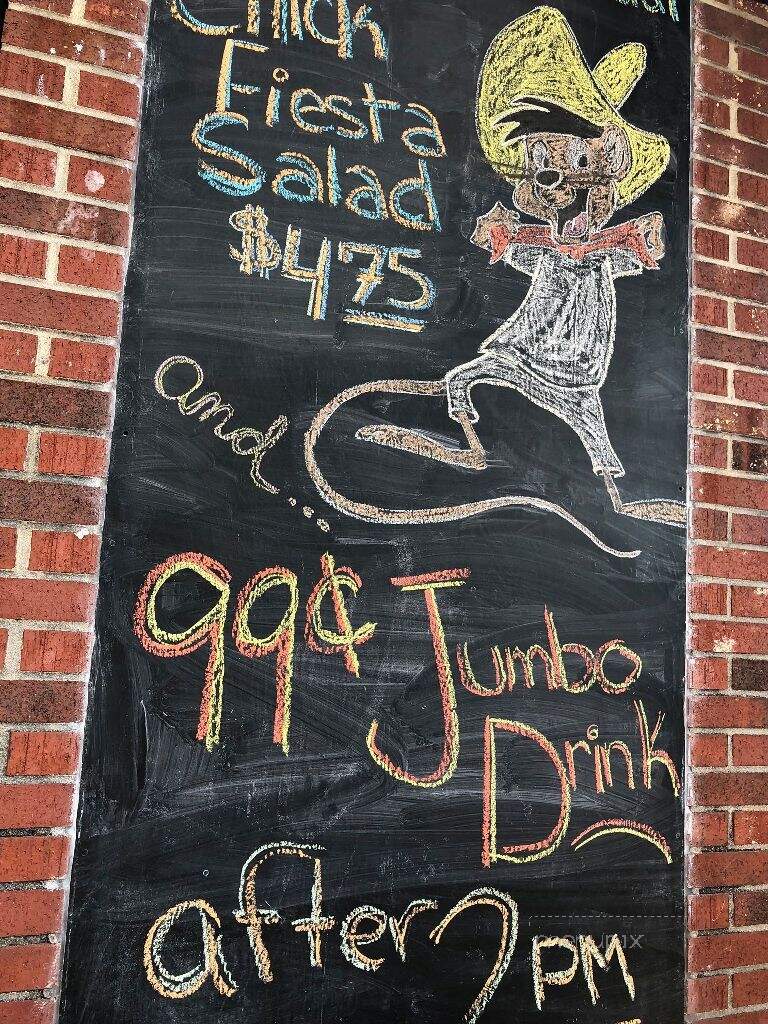 Chick
Fiesta
Salad
$4.75
and...
99¢ Jumbo
Drink
after 2 PM